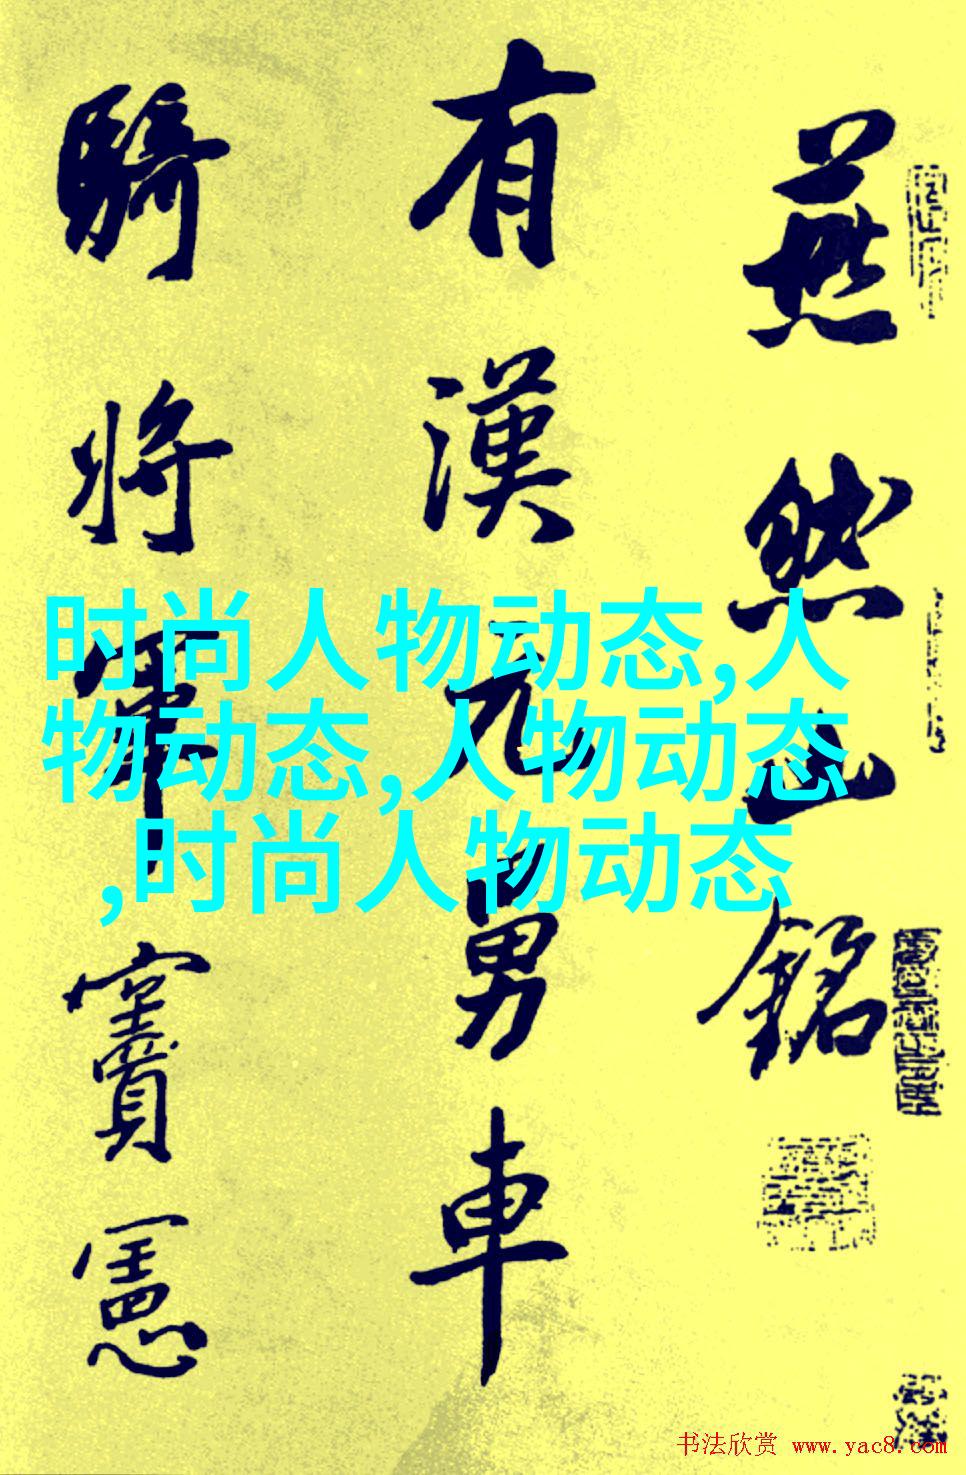 燕然山銘
有漢元舅車
騎將軍竇憲
时尚人物动态,人
物动态,人物动态
,时尚人物动态
书法欣赏 www.yac8.com